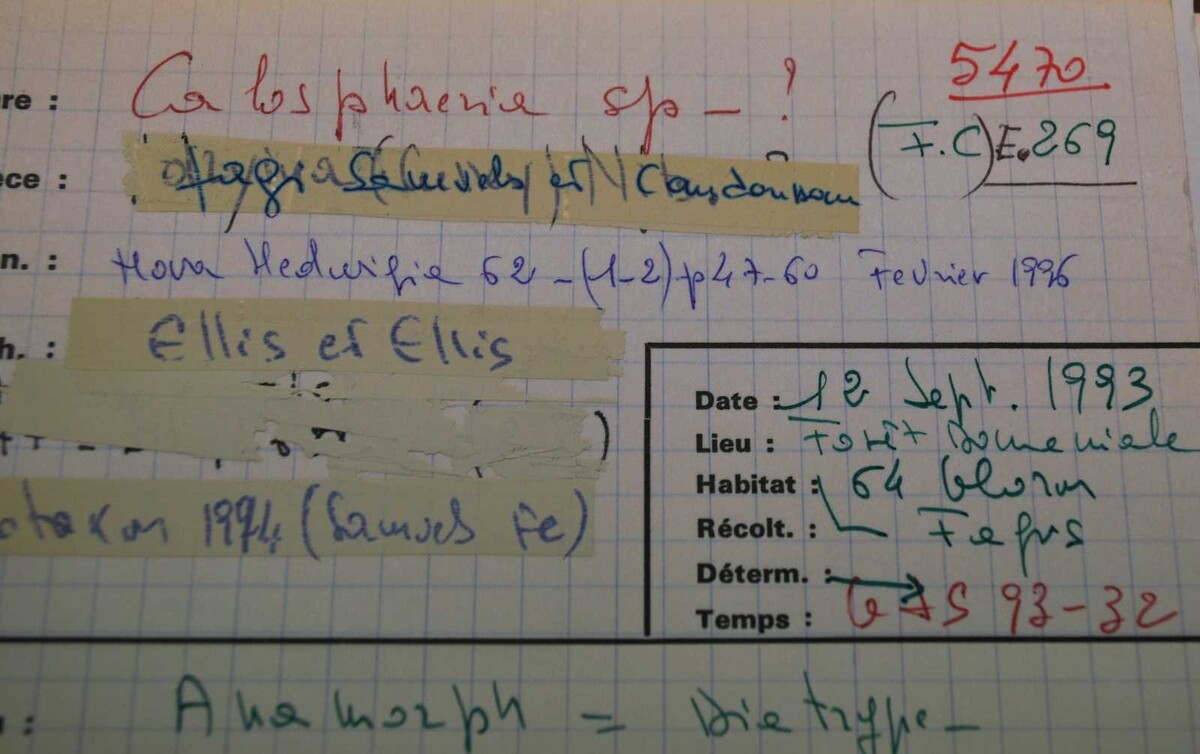 re :
Calosphaeria sp - ?
5470
(F.C) E.269
èce :
Samuels et
n. :
Nova Hedwigia 62 - (1-2) p 47-60 Fevrier 1996
h. :
Ellis et Ellis
1994 (Samuels Fe)
Date : 12 Sept. 1993
Lieu : Forêt Domeniale
Habitat : 64
Récolt. : Fagus
Déterm. :
Temps : GJS 93-32
:
Anamorph = Diatrype -